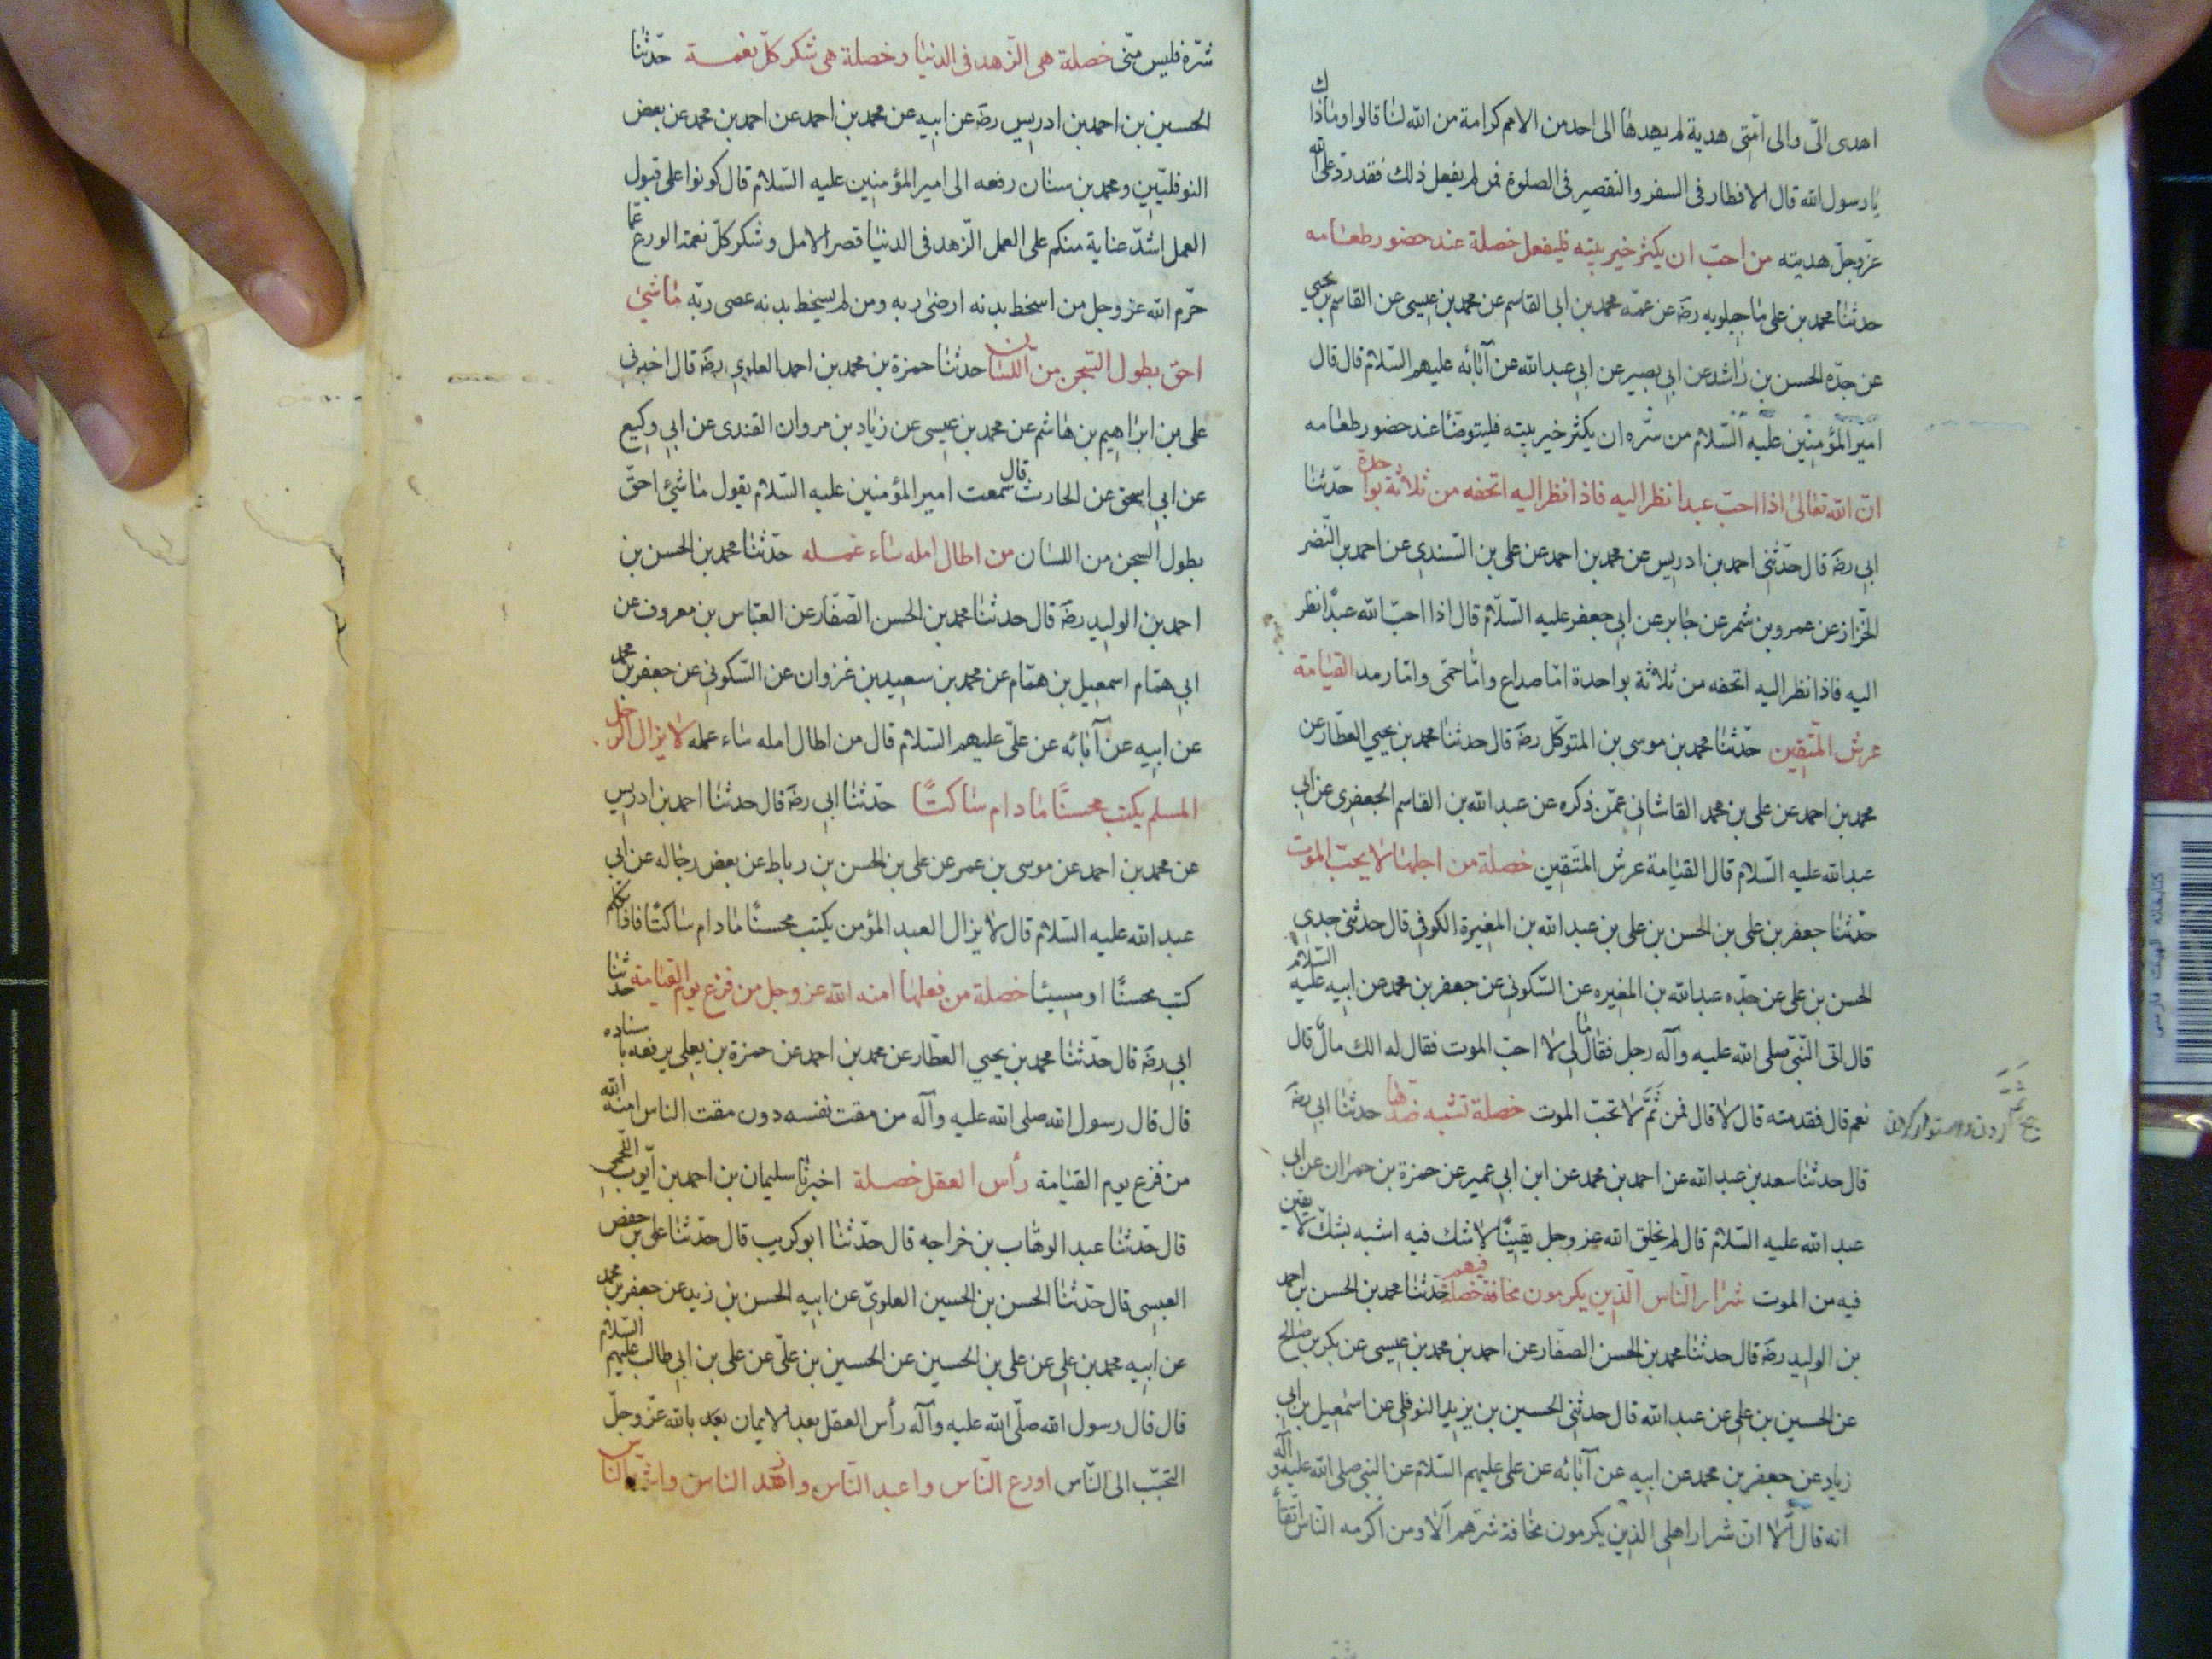 اهدى الىّ والى امّتى هدية لم يهدها الى احد من الامم كرامة من الله لنا قالوا وماذاك
يا رسول الله قال الافطار فى السفر والتقصير فى الصلوة فمن لم يفعل ذلك فقد ردّ على الله
عزّ وجلّ هديته من احبّ ان يكثر خير بيته فليفعل خصلة عند حضور طعامه
حدثنا محمد بن على ماجيلويه رضۀ عن عمّه محمد بن ابى القاسم عن محمد بن عيسى عن القاسم بن يحيى
عن جدّه الحسن بن راشد عن ابى بصير عن ابى عبد الله عن آبائه عليهم السّلام قال قال
امير المؤمنين عليه السّلام من سّره ان يكثر خير بيته فليتوضّا عند حضور طعامه
انّ الله تعالى اذا احبّ عبدا نظر اليه فاذا نظر اليه اتحفه من ثلاثة بواحدة حدّثنا
ابى رضۀ قال حدّثنى احمد بن ادريس عن محمد بن احمد عن على بن السّندى عن احمد بن النّضر
الخزاز عن عمرو بن شمر عن جابر عن ابى جعفر عليه السّلام قال اذا احبّ الله عبدًا نظر
اليه فاذا نظر اليه اتحفه من ثلاثة بواحدة امّا صداع وامّا حمّى وامّا رمد القيامة
عرس المتّقين حدّثنا محمد بن موسى بن المتوكّل رضۀ قال حدثنا محمد بن يحيي العطّار عن
محمد بن احمد عن على بن محمد القاشانى عمّن ذكره عن عبد الله بن القاسم الجعفرى عن ابى
عبد الله عليه السّلام قال القيامة عرس المتّقين خصلة من اجلها لا يحبّ الموت
حدّثنا جعفر بن على بن الحسن بن على بن عبد الله بن المغيرة الكوفى قال حدثنى جدى
الحسن بن على عن جدّه عبد الله بن المغيره عن السّكونى عن جعفر بن محمد عن ابيه عليه السّلام
قال اتى النّبىّ صلى الله عليه وآله رجل فقال مالى لا احبّ الموت فقال له الك مال قال
نعم قال فقدمته قال لا قال فمن ثَمَّ لا تحبّ الموت خصلة تشبه ضدّها حدثنا ابى رضۀ
ثَمَّ
قال حدثنا سعد بن عبد الله عن احمد بن محمد عن ابن ابى عمير عن حمزة بن حمران عن ابى
عبد الله عليه السّلام قال لم يخلق الله عز وجل يقينًا لا شك فيه اشبه بشكّ لا يقين
فيه من الموت شرار النّاس الّذين يكرمون مخافة خصلة فيهم حدّثنا محمد بن الحسن بن احمد
بن الوليد رضۀ قال حدثنا محمد بن الحسن الصّفار عن احمد بن محمد بن عيسى عن بكر بن صالح
عن الحسين بن على عن عبد الله قال حدثنى الحسين بن يزيد النوفلى عن اسمعيل بن ابى
زياد عن جعفر بن محمد عن ابيه عن آبائه عن على عليهم السّلام عن النبى صلى الله عليه وآله
انه قال ألا انّ شرار اهلى الذين يكرمون مخافة شرّهم ألا ومن اكرمه النّاس اتقاء
شرّه فليس منّى خصلة هى الزّهد فى الدنيا وخصلة هى شكر كلّ نعمة حدّثنا
الحسين بن احمد بن ادريس رضۀ عن ابيه عن محمد بن احمد عن احمد بن محمد عن بعض
النوفليّين ومحمد بن سنان رفعه الى امير المؤمنين عليه السّلام قال كونوا على قبول
العمل اشدّ عناية منكم على العمل الزّهد فى الدنيا قصر الامل وشكر كلّ نعمة الورع عمّا
حرّم الله عز وجل من اسخط بدنه ارضى ربه ومن لم يسخط بدنه عصى ربّه ما شئ
احق بطول السّجن من اللسان حدثنا حمزة بن محمد بن احمد العلوى رضۀ قال اخبرنى
على بن ابراهيم بن هاشم عن محمد بن عيسى عن زياد بن مروان القندى عن ابى وكيع
عن ابى اسحق عن الحارث قال سمعت امير المؤمنين عليه السّلام يقول ما شئ احقّ
بطول السجن من اللسان من اطال امله ساء عمله حدّثنا محمد بن الحسن بن
احمد بن الوليد رضۀ قال حدثنا محمد بن الحسن الصّفّار عن العبّاس بن معروف عن
ابى همّام اسمعيل بن همّام عن محمد بن سعيد بن غزوان عن السّكونى عن جعفر بن محمد
عن ابيه عن آبائه عن علىّ عليهم السّلام قال من اطال امله ساء عمله لا يزال الرجل
المسلم يكتب محسنًا مادام ساكتًا حدّثنا ابى رضۀ قال حدثنا احمد بن ادريس
عن محمد بن احمد عن موسى بن عمر عن على بن الحسن بن رباط عن بعض رجاله عن ابى
عبد الله عليه السّلام قال لا يزال العبد المؤمن يكتب محسنًا مادام ساكتًا فاذا تكلم
كتب محسنًا او مسيئا خصلة من فعلها امنه الله عز وجل من فزع يوم القيامة حدثنا
ابى رضۀ قال حدّثنا محمد بن يحيي العطّار عن محمد بن احمد عن حمزة بن يعلى يرفعه باسناده
قال قال رسول الله صلى الله عليه وآله من مقت نفسه دون مقت الناس امنه الله
من فزع يوم القيامة رأس العقل خصلة اخبرنا سليمان بن احمد بن ايّوب اللخمى
قال حدّثنا عبد الوهّاب بن خراجه قال حدّثنا ابو كريب قال حدّثنا على بن حفص
العبسى قال حدّثنا الحسن بن الحسين العلوىّ عن ابيه الحسن بن زيد عن جعفر بن محمد
عن ابيه محمد بن على عن على بن الحسين عن الحسين بن علىّ عن على بن ابى طالب عليهم السّلام
قال قال رسول الله صلّى الله عليه وآله رأس العقل بعد الايمان بعد بالله عزّ وجلّ
التحبّب الى النّاس اورع النّاس واعبد النّاس وازهد الناس واشدّ النّاس